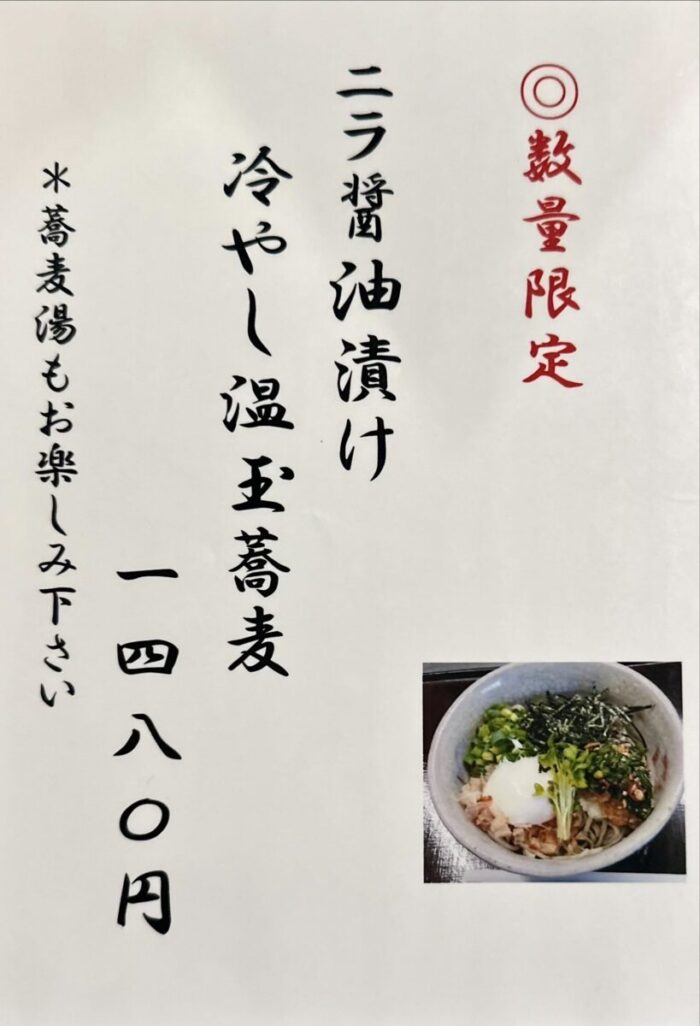 ◎数量限定
ニラ醤油漬け
冷やし温玉蕎麦
一四八〇円
＊蕎麦湯もお楽しみ下さい